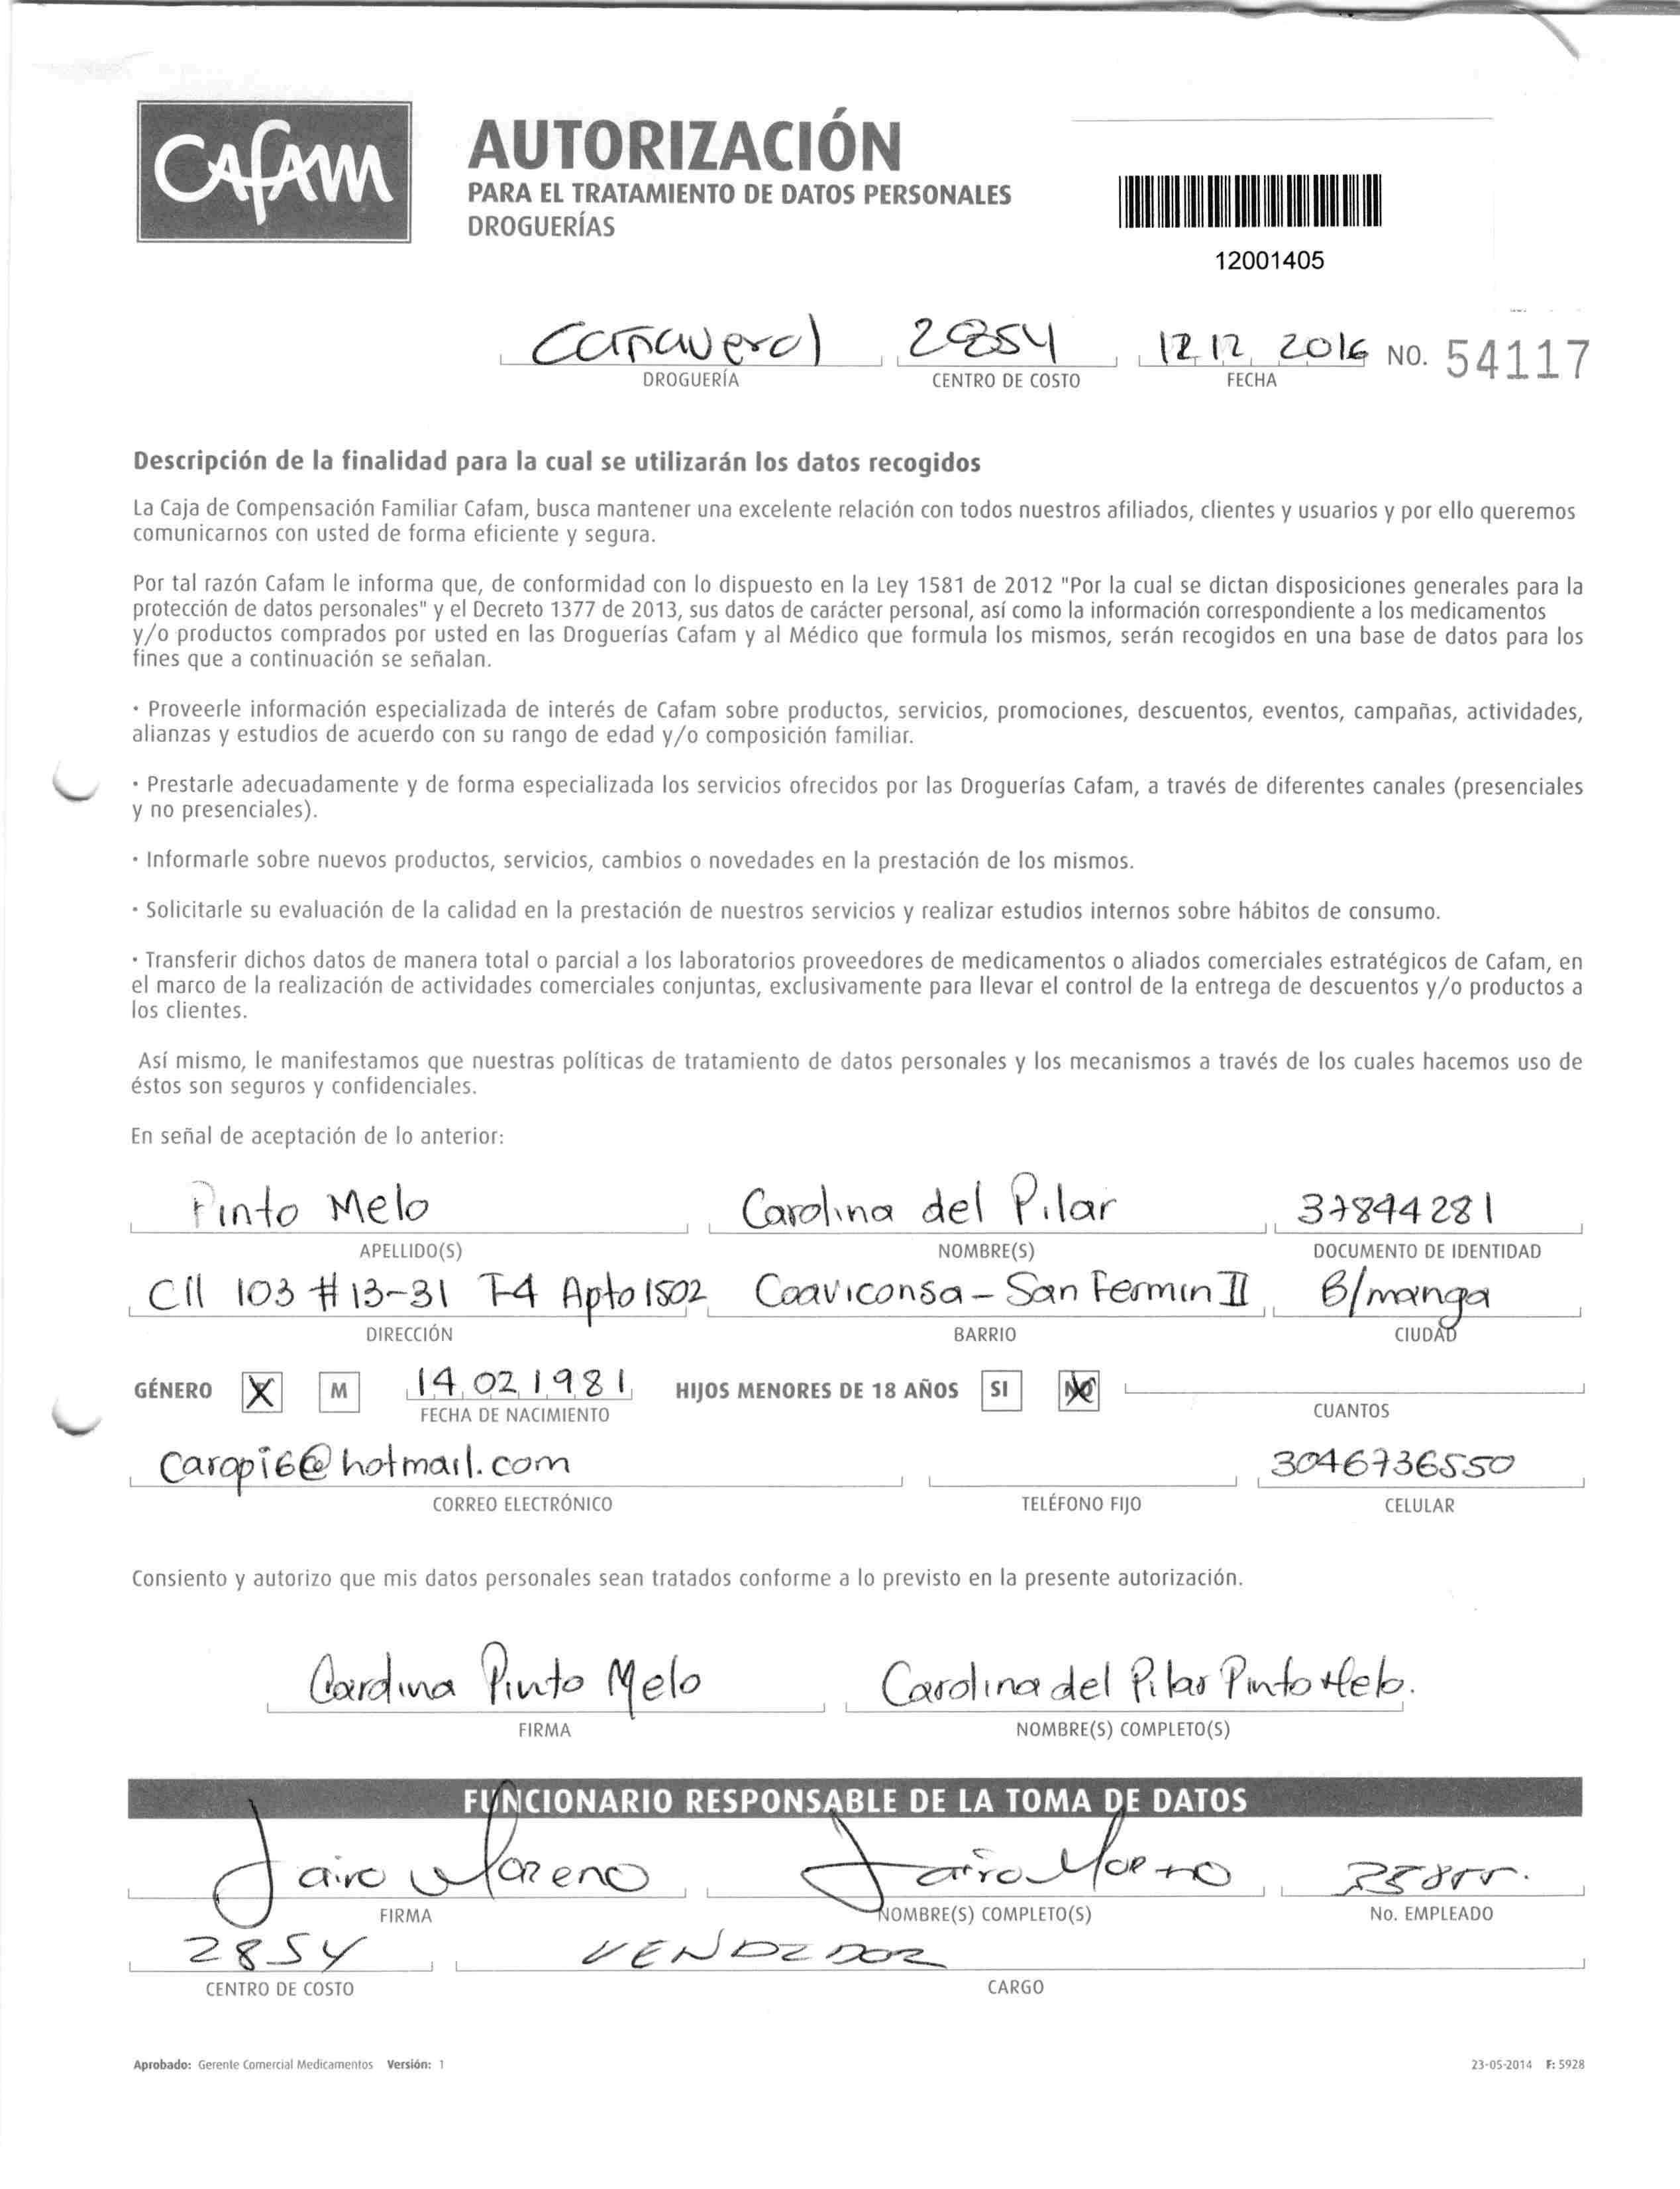 Cafam
AUTORIZACIÓN
PARA EL TRATAMIENTO DE DATOS PERSONALES
DROGUERÍAS
12001405
Cañaveral 2854 12 12 2016 NO. 54117
DROGUERÍA CENTRO DE COSTO FECHA
Descripción de la finalidad para la cual se utilizarán los datos recogidos
La Caja de Compensación Familiar Cafam, busca mantener una excelente relación con todos nuestros afiliados, clientes y usuarios y por ello queremos
comunicarnos con usted de forma eficiente y segura.
Por tal razón Cafam le informa que, de conformidad con lo dispuesto en la Ley 1581 de 2012 "Por la cual se dictan disposiciones generales para la
protección de datos personales" y el Decreto 1377 de 2013, sus datos de carácter personal, así como la información correspondiente a los medicamentos
y/o productos comprados por usted en las Droguerías Cafam y al Médico que formula los mismos, serán recogidos en una base de datos para los
fines que a continuación se señalan.
· Proveerle información especializada de interés de Cafam sobre productos, servicios, promociones, descuentos, eventos, campañas, actividades,
alianzas y estudios de acuerdo con su rango de edad y/o composición familiar.
· Prestarle adecuadamente y de forma especializada los servicios ofrecidos por las Droguerías Cafam, a través de diferentes canales (presenciales
y no presenciales).
· Informarle sobre nuevos productos, servicios, cambios o novedades en la prestación de los mismos.
· Solicitarle su evaluación de la calidad en la prestación de nuestros servicios y realizar estudios internos sobre hábitos de consumo.
· Transferir dichos datos de manera total o parcial a los laboratorios proveedores de medicamentos o aliados comerciales estratégicos de Cafam, en
el marco de la realización de actividades comerciales conjuntas, exclusivamente para llevar el control de la entrega de descuentos y/o productos a
los clientes.
Así mismo, le manifestamos que nuestras políticas de tratamiento de datos personales y los mecanismos a través de los cuales hacemos uso de
éstos son seguros y confidenciales.
En señal de aceptación de lo anterior:
Pinto Melo Carolina del Pilar 37844281
APELLIDO(S) NOMBRE(S) DOCUMENTO DE IDENTIDAD
Cll 103 # 13-31 T-4 Apto 1502 Coaviconsa - San Fermin II B/manga
DIRECCIÓN BARRIO CIUDAD
GÉNERO X M 14 02 1981 HIJOS MENORES DE 18 AÑOS SI NO
FECHA DE NACIMIENTO CUANTOS
caropi6@hotmail.com 3046736550
CORREO ELECTRÓNICO TELÉFONO FIJO CELULAR
Consiento y autorizo que mis datos personales sean tratados conforme a lo previsto en la presente autorización.
Carolina Pinto Melo Carolina del Pilar Pinto Melo.
FIRMA NOMBRE(S) COMPLETO(S)
FUNCIONARIO RESPONSABLE DE LA TOMA DE DATOS
Jairo Moreno Jairo Moreno
FIRMA NOMBRE(S) COMPLETO(S) No. EMPLEADO
2854 VENDEDOR
CENTRO DE COSTO CARGO
Aprobado: Gerente Comercial Medicamentos Versión: 1 23-05-2014 F: 5928